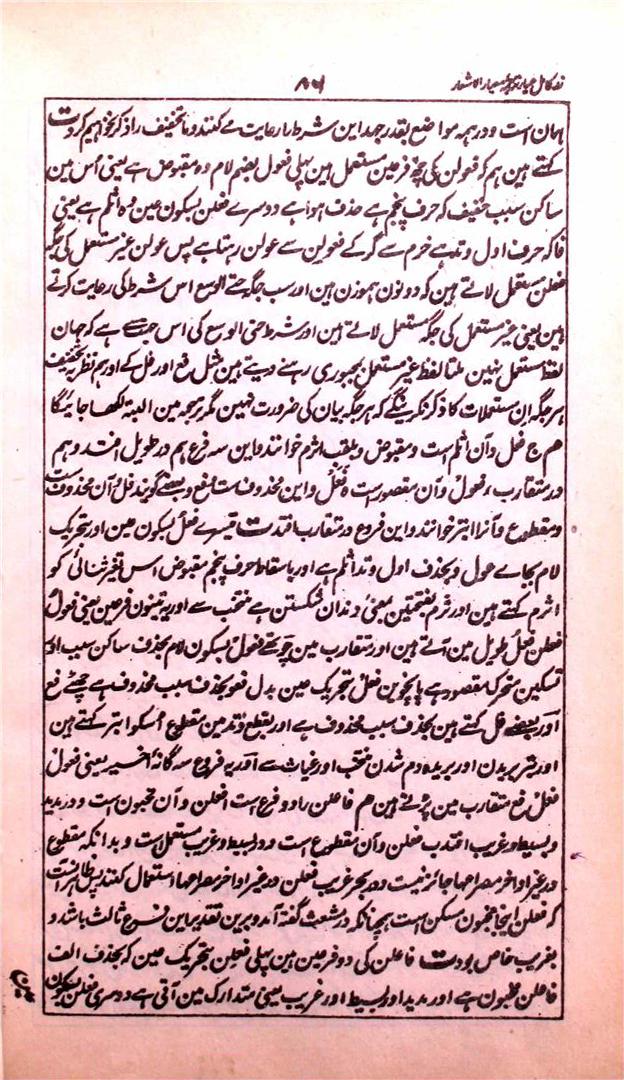 زرکامل عیار ترجمہ معیار الاشعار
۸۶
ہمان است و درہمہ مواضع بقدر جہد این شرط را رعایت مے کنند و ما تخفیف را ذکر نخواہیم کرد ت
کہتے ہین ہم کہ فعولن کی چھ فرعین مستعمل ہین پہلی فعول بضم لام وہ مقبوض ہے یعنی اُس مین
ساکن سبب خفیف کہ حرف پنجم ہے حذف ہوا ہے دوسرے فعلن بسکون عین وہ اثلم ہے یعنی
فا کہ حرف اول وتد ہے خرم سے گر کے فعولن سے عولن رہتا ہے پس عولن غیر مستعمل کی جگہ
فعلن مستعمل لاتے ہین کہ دونون ہموزن ہین اور سب جگہ حتے الوسع اس شرط کی رعایت کرتے
ہین یعنی غیر مستعمل کی جگہ مستعمل لاتے ہین اور شرط حتی الوسع کی اس جہت سے ہے کہ جہان
لفظ مستعمل نہین ملتا لفظ غیر مستعمل بمجبوری رہنے دیتے ہین مثل فع اور فل کے اور ہم نظر بہ تخفیف
ہر جگہ ان مستعملات کا ذکر نکرینگے کہ ہر جگہ بیان کی ضرورت نہین مگر ترجمہ مین البتہ لکھا جائیگا
م ج فعل و آن اثلم است و مقبوض و بلقب اثرم خوانند و این سہ فرع ہم در طویل افتد و ہم
در متقارب ، فعول و آن مقصور است ہ فعل و این محذوف است فع و بعضے گویند فل و آن محذوف است
و مقطوع و آنرا ابتر خوانند و این فروع در متقارب افتد ت تیسرے فعل بسکون عین اور تحریک
لام بجاے عول و بحذف اول وتد اثلم ہے اور باسقاط حرف پنجم مقبوض اس تغیر ثنائی کو
اثرم کہتے ہین اور ثرم بفتحتین بمعنی دندان شکستن ہے منتخب سے اور یہ تینون فرعین یعنی فعول
فعلن فعل طویل مین آتے ہین اور متقارب مین چوتھے فعول بسکون لام بحذف ساکن سبب اور
تسکین متحرک مقصور ہے پانچوین فعل بتحریک عین بدل فعو بحذف سبب محذوف ہے چھٹے فع
اور بعضے فل کہتے ہین بحذف سبب محذوف ہے اور بقطع وتد مین مقطوع اُسکو ابتر کہتے ہین
اور بتر بریدن اور بریدہ دم شدن منتخب اور غیاث سے اور یہ فروع سہ گانۂ اخیر یعنی فعول
فعل فع متقارب مین پڑتے ہین م فاعلن را دو فرع است ا فعلن و آن مخبون است و در مدید
و بسیط و غریب افتد ب فعلن و آن مقطوع است و در بسیط و غریب مستعمل است و بدانکہ مقطوع
در غیر اواخر مصراعہا جائز نیست و در بحر غریب فعلن در غیر اواخر مصراعہا استعمال کنند پس ظاہر آنست
کہ فعلن اینجا مخبون مسکن است ہمچنانکہ در مشعث گفتہ آمد و برین تقدیر این فرع ثالث باشد و
بغریب خاص بود ت فاعلن کی دو فرعین ہین پہلی فعلن بتحریک عین کہ بحذف الف
فاعلن مخبون ہے اور مدید اور بسیط اور غریب یعنی متدارک مین آتی ہے دوسری فعلن بسکون
عین